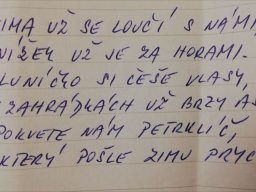 ZIMA UŽ SE LOUČÍ S NÁMI,
NÍŽEK UŽ JE ZA HORAMI.
LUNÍČKO SI ČEŠE VLASY,
ZAHRÁDKÁCH UŽ BRZY AS
POKVETE NÁM PETRKLÍČ,
KTERÝ POŠLE ZIMU PRYČ